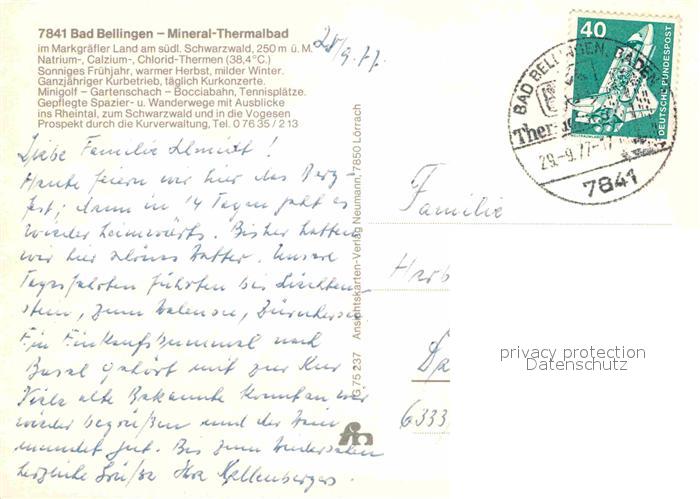 7841 Bad Bellingen – Mineral-Thermalbad
im Markgräfler Land am südl. Schwarzwald, 250 m ü. M.
Natrium-, Calzium-, Chlorid-Thermen (38,4°C.)
Sonniges Frühjahr, warmer Herbst, milder Winter.
Ganzjähriger Kurbetrieb, täglich Kurkonzerte.
Minigolf – Gartenschach – Bocciabahn, Tennisplätze.
Gepflegte Spazier- u. Wanderwege mit Ausblicke
ins Rheintal, zum Schwarzwald und in die Vogesen
Prospekt durch die Kurverwaltung, Tel. 0 76 35 / 2 13
28/9.77
Liebe Familie Schmidt!
Heute feiern wir hier das Berg-
fest; denn in 14 Tagen geht es
wieder heimwärts. Bisher hatten
wir hier schönes Wetter. Unsere
Tagesfahrten führten bis Liechten-
stein, zum Walensee, Zürichersee.
Ein Einkaufsbummel nach
Basel gehört mit zur Kur
Viele alte Bekannte konnten wir
wieder begrüßen und der Wein
mundet gut. Bis zum Wiedersehen
herzliche Grüße Ihre Kellenbergers.
G 75 237 Ansichtskarten-Verlag Neumann, 7850 Lörrach
40
DEUTSCHE BUNDESPOST
BAD BELLINGEN, BADEN
Ther
28.-9.77-17
7841
Familie
Herb
Da
6333
privacy protection
Datenschutz